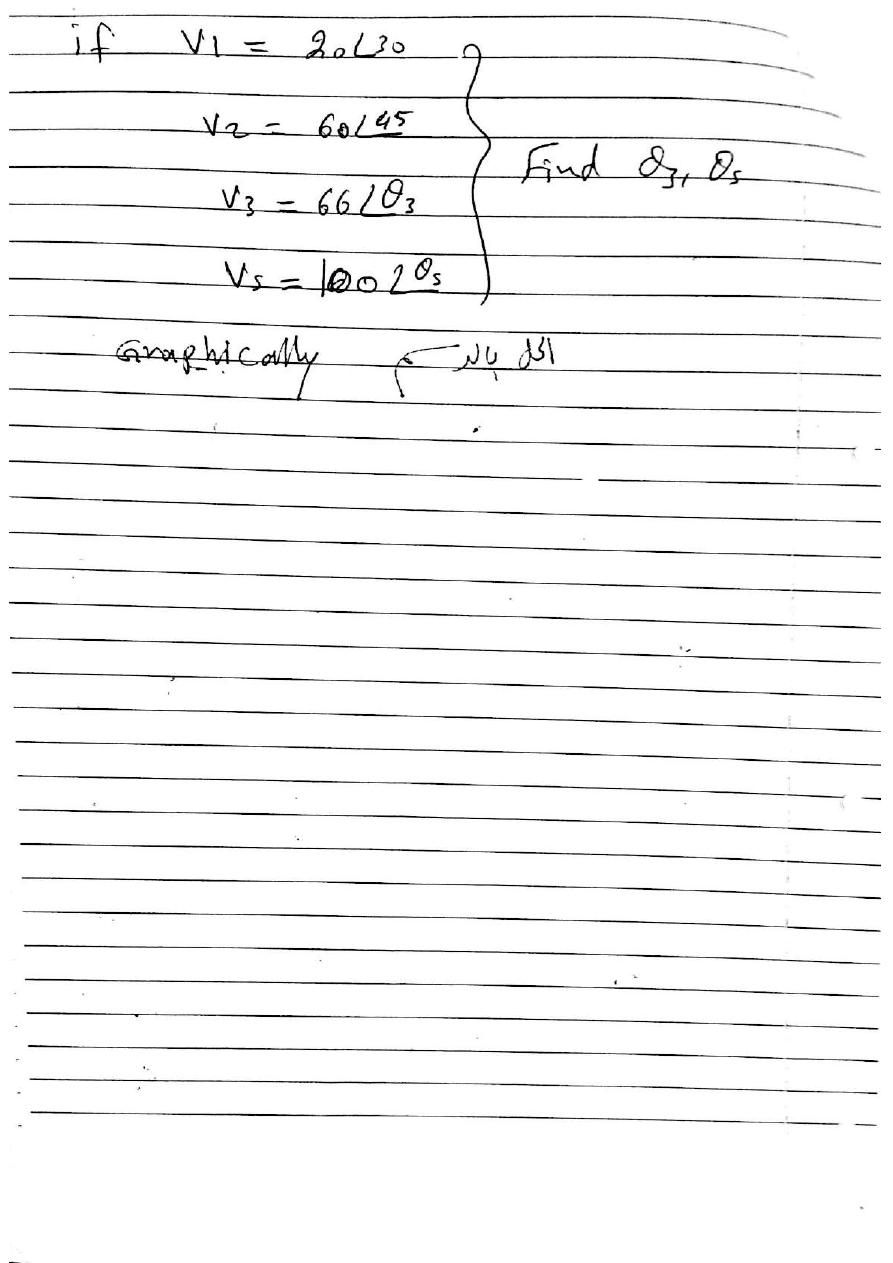 if V1 = 20∠30
V2 = 60∠45
V3 = 66∠θ3
Vs = 100∠θs
Find θ3, θs
Graphically الحل بالرسم